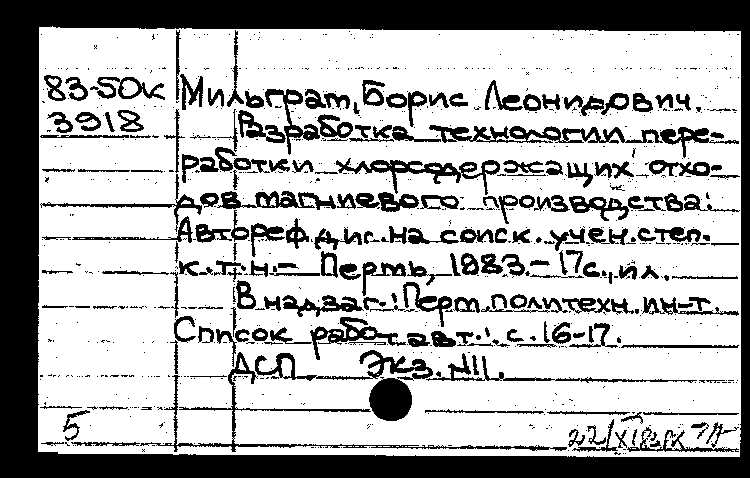 83-50к Мильграт, Борис Леонидович.
3918 Разработка технологии пере-
работки хлорсодержащих отхо-
дов магниевого производства:
Автореф. дис. на соиск. учен. степ.
к.т.н.- Пермь, 1983.- 17с., ил.
В надзаг.: Перм. политехн. ин-т.
Список работ авт.: с. 16-17.
ДСП. Экз. №11.
5 22/XI83